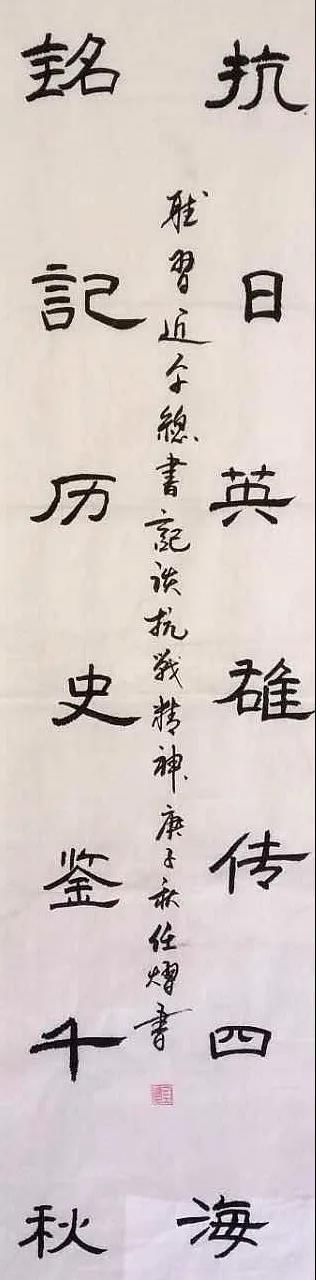 抗日英雄传四海
铭記历史鉴千秋
聴習近平總書記谈抗战精神 庚子秋任熠書